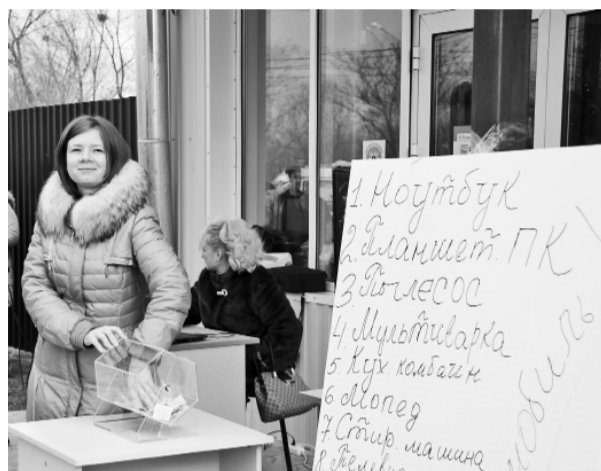 1. Ноутбук
2. Планшет. ПК
3. Пылесос
4. Мультиварка
5. Кух. комбайн
6 Мопед
7. Стир. машина